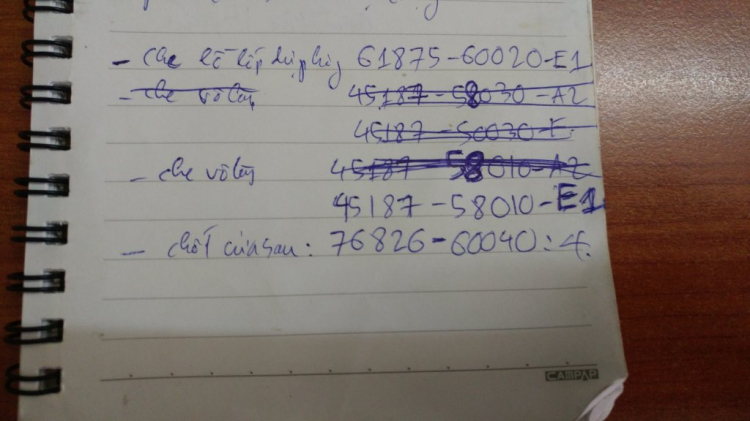 - che lỗ lốp dự phòng 61875-60020-E1
- che vô lăng 45187-58030-A2
45187-50030-E
- che vô lăng 45187-58010-A2
45187-58010-E1
- chốt cửa sau: 76826-60040: 4.
CAMPAP